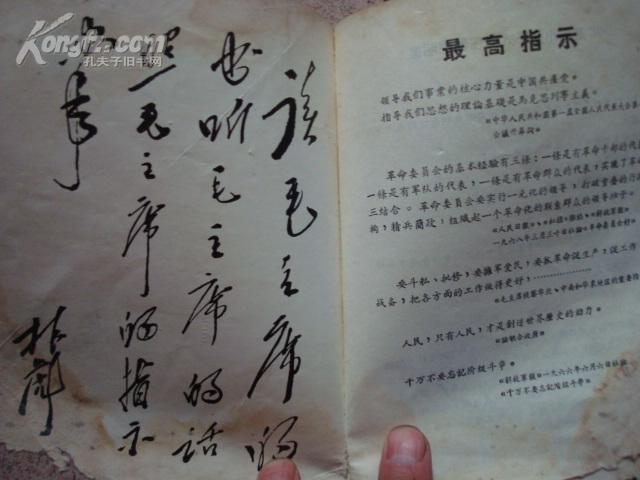 Kongfz.com
孔夫子旧书网
读毛主席的
书听毛主席的话
照毛主席的指示
办事
林彪
最高指示
领导我们事业的核心力量是中国共产党。
指导我们思想的理论基础是马克思列宁主义。
《中华人民共和国第一届全国人民代表大会第
会议开幕词》
革命委员会的基本经验有三条：一条是有革命干部的代
一条是有军队的代表，一条是有革命群众的代表，实现了革
三结合。革命委员会要实行一元化的领导，打破重叠的行
构，精兵简政，组织起一个革命化的联系群众的领导班子。
《人民日报》、《红旗》杂志、《解放军报》
一九六八年三月三十日社论《革命委员会好》
要斗私、批修，要拥军爱民，要抓革命促生产，促工作
战备，把各方面的工作做得更好，…………
《毛主席视察华北、中南和华东地区的重要指
人民，只有人民，才是创造世界历史的动力。
《论联合政府》
千万不要忘记阶级斗争。
《解放军报》一九六六年六月六日社论
《千万不要忘记阶级斗争》